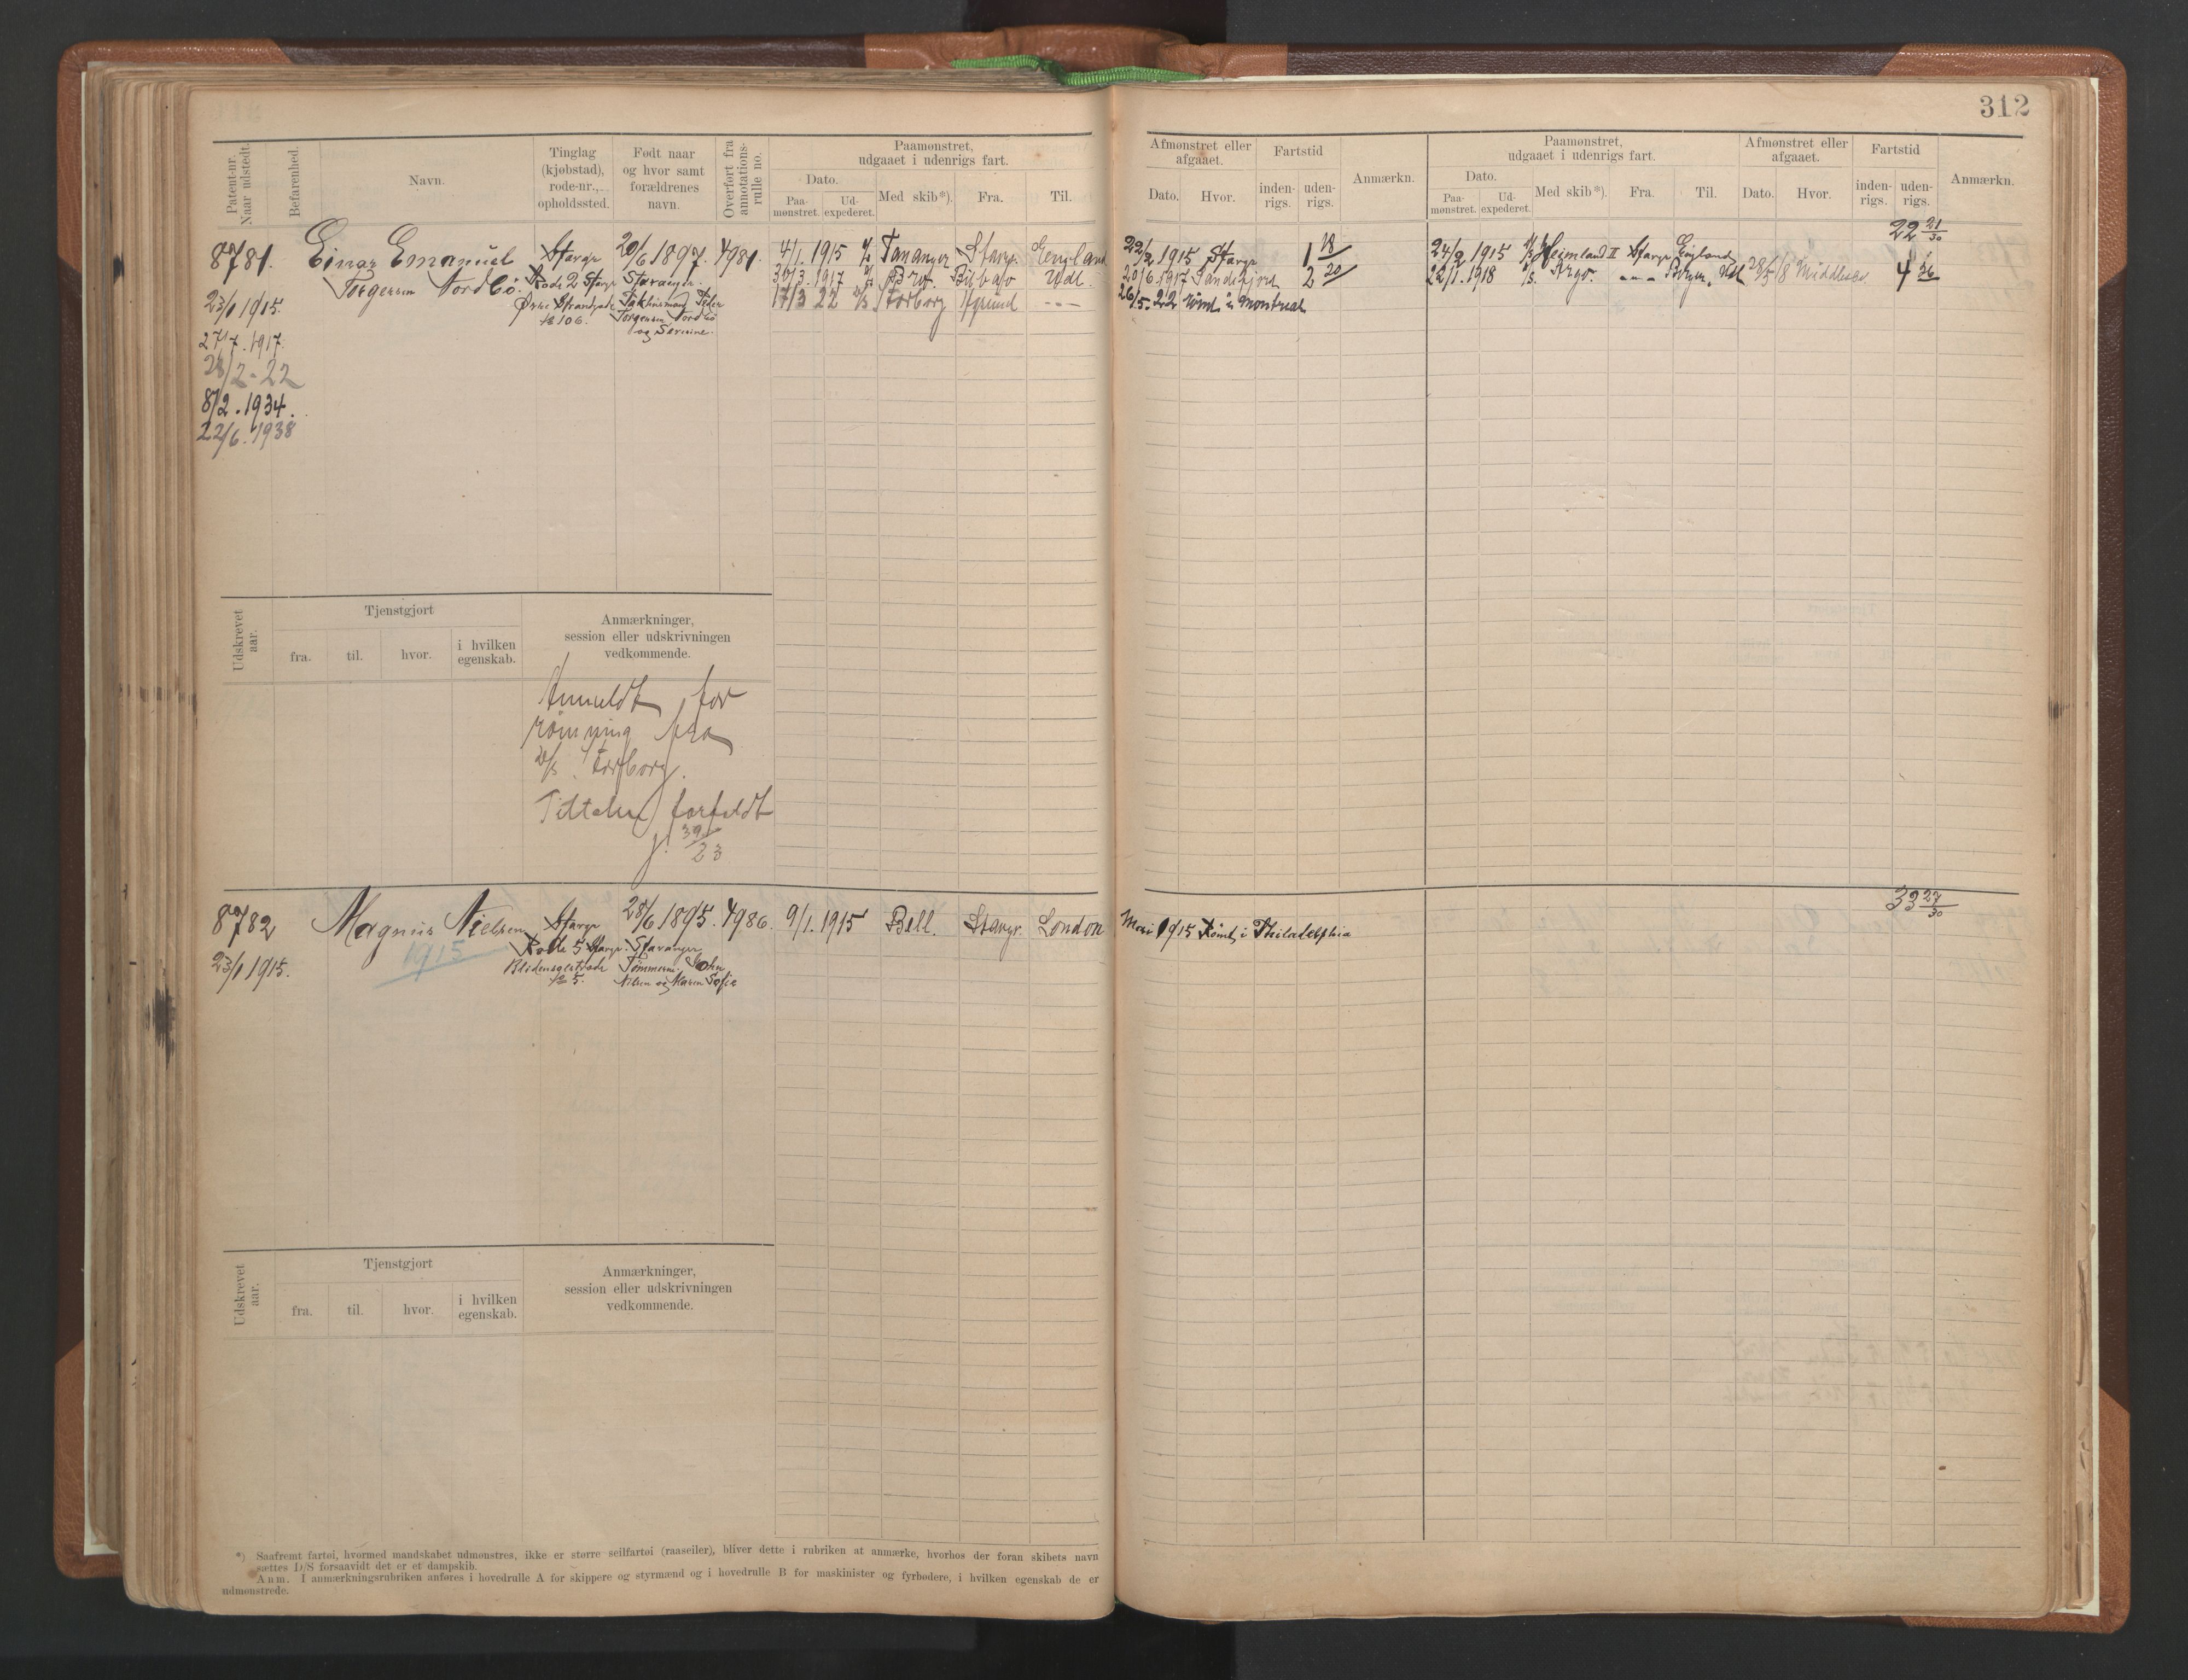 312
Patent-nr. Naar udstedt.
Befarenhed.
Navn.
Tinglag (kjøbstad), rode-nr., opholdssted.
Født naar og hvor samt forældrenes navn.
Overført fra annotations-rulle no.
Paamønstret, udgaaet i udenrigs fart.
Dato.
Paa-mønstret.
Ud-expederet.
Med skib*).
Fra.
Til.
Afmønstret eller afgaaet.
Dato.
Hvor.
Fartstid
inden-rigs.
uden-rigs.
Anmærkn.
Paamønstret, udgaaet i udenrigs fart.
Dato.
Paa-mønstret.
Ud-expederet.
Med skib*).
Fra.
Til.
Afmønstret eller afgaaet.
Dato.
Hvor.
Fartstid
inden-rigs.
uden-rigs.
Anmærkn.
22 21/30
8781. Einar Emanuel Stavgr 20/6 1897. 4981. 4/1. 1915 Tananger Stavgr. England 22/2 1915 Stavgr 1 18/ 24/2 1915 Heimland II Stavgr England
Torgersen Nordbö. Rode 2 Stavgr Stavanger. 30/3. 1917 Bilbao Udl. 20/6 1917 Sandefjord 2 20/ 22/1. 1918 Argo. 28/5 18 Middlesbro 4 26
23/1 1915. Øvre Strandgade Peder 17/3 22 Torborg 26/5. 22 Römt i Montreal
№ 106. Torgersen Nordbö
og Serine.
27/7. 1917.
28/2-22
8/2. 1934.
22/6. 1938
Udskrevet aar.
Tjenstgjort
fra.
til.
hvor.
i hvilken egenskab.
Anmærkninger, session eller udskrivningen vedkommende.
Anmeldt for
römning fra
Torborg.
Tiltalen forfaldt
j. 39/23
33 27/30
8782 Magnus Nielsen Stavgr 28/6 1895. 4986. 9/1. 1915 Bell. Stavgr. London Mai 1915 Römt i Philadelphia
1915 Rode 5 Stavgr. Stavanger
23/1 1915. Tømmerm. John
№ 5. Nilsen og Maren Sofie
Udskrevet aar.
Tjenstgjort
fra.
til.
hvor.
i hvilken egenskab.
Anmærkninger, session eller udskrivningen vedkommende.
*) Saafremt fartøi, hvormed mandskabet udmønstres, ikke er større seilfartøi (raaseiler), bliver dette i rubriken at anmærke, hvorhos der foran skibets navn
sættes D/S forsaavidt det er et dampskib.
Anm. I anmærkningsrubriken anføres i hovedrulle A for skippere og styrmænd og i hovedrulle B for maskinister og fyrbødere, i hvilken egenskab de er
udmønstrede.